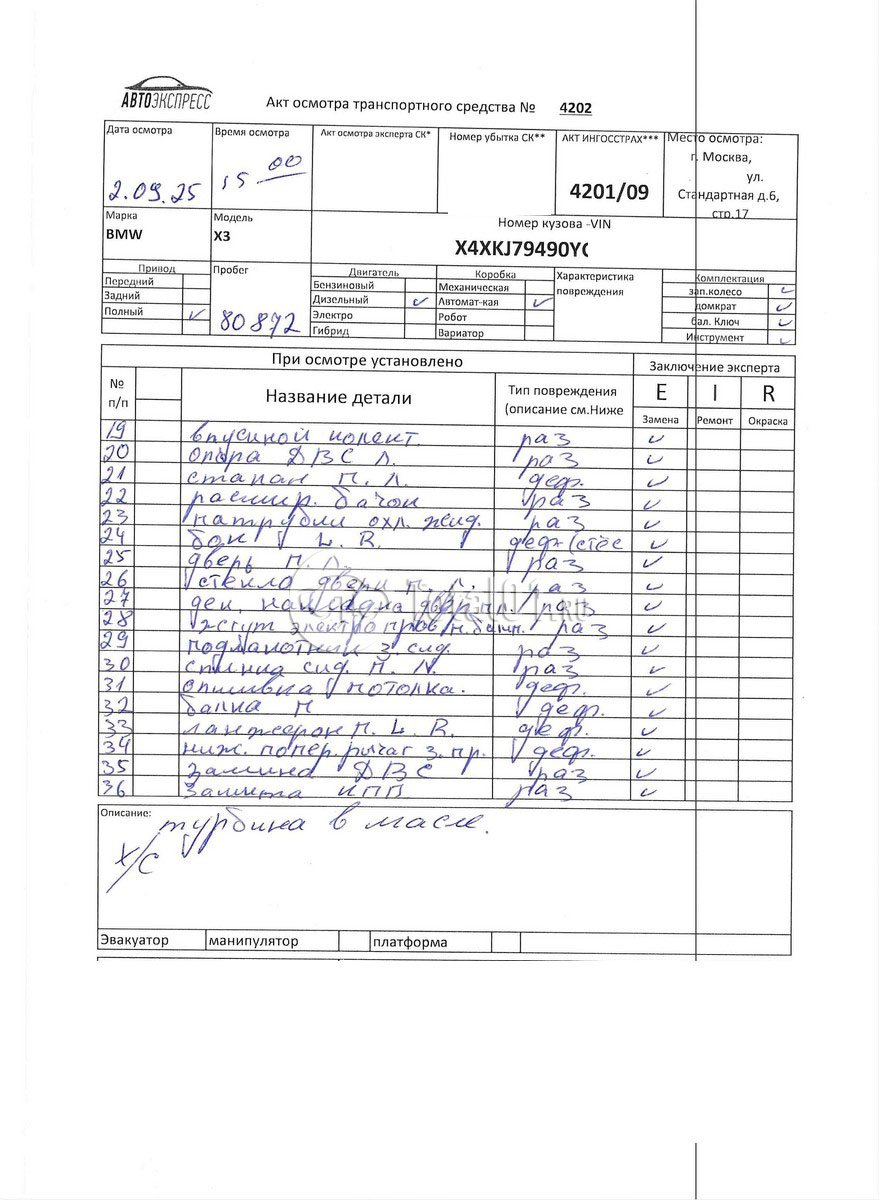 АВТОЭКСПРЕСС
Акт осмотра транспортного средства № 4202
Дата осмотра
2.09.25
Время осмотра
15 00
Акт осмотра эксперта СК*
Номер убытка СК**
АКТ ИНГОССТРАХ***
4201/09
Место осмотра:
г. Москва,
ул.
Стандартная д.6,
стр.17
Марка
BMW
Модель
X3
Номер кузова -VIN
X4XKJ79490Y
Привод
Передний
Задний
Полный ✓
Пробег
80872
Двигатель
Бензиновый
Дизельный ✓
Электро
Гибрид
Коробка
Механическая
Автомат-кая ✓
Робот
Вариатор
Характеристика
повреждения
Комплектация
зап.колесо ✓
домкрат ✓
бал. Ключ ✓
Инструмент ✓
При осмотре установлено
Заключение эксперта
№
п/п
Название детали
Тип повреждения
(описание см.Ниже
E I R
Замена Ремонт Окраска
19 впускной колект. раз ✓
20 опора ДВС л. раз ✓
21 стапан П. Л. деф. ✓
22 расшир. бачок раз ✓
23 патрубки охл. жид. раз ✓
24 бак L. R. деф (стёс ✓
25 дверь П. Л. раз ✓
26 стекло двери п. Л. раз ✓
27 дек. накладка двер п.л. раз ✓
28 жгут электропров. раз ✓
29 подлакотник з сид. раз ✓
30 спинка сид. П. Л. раз ✓
31 обшивка потолка. деф. ✓
32 балка П деф. ✓
33 ланжерон П. L. R. деф. ✓
34 ниж. попер. рычаг з. пр. деф. ✓
35 Защита ДВС раз ✓
36 Защита КПП раз ✓
Описание: турбина в масле.
х/с
Эвакуатор манипулятор платформа